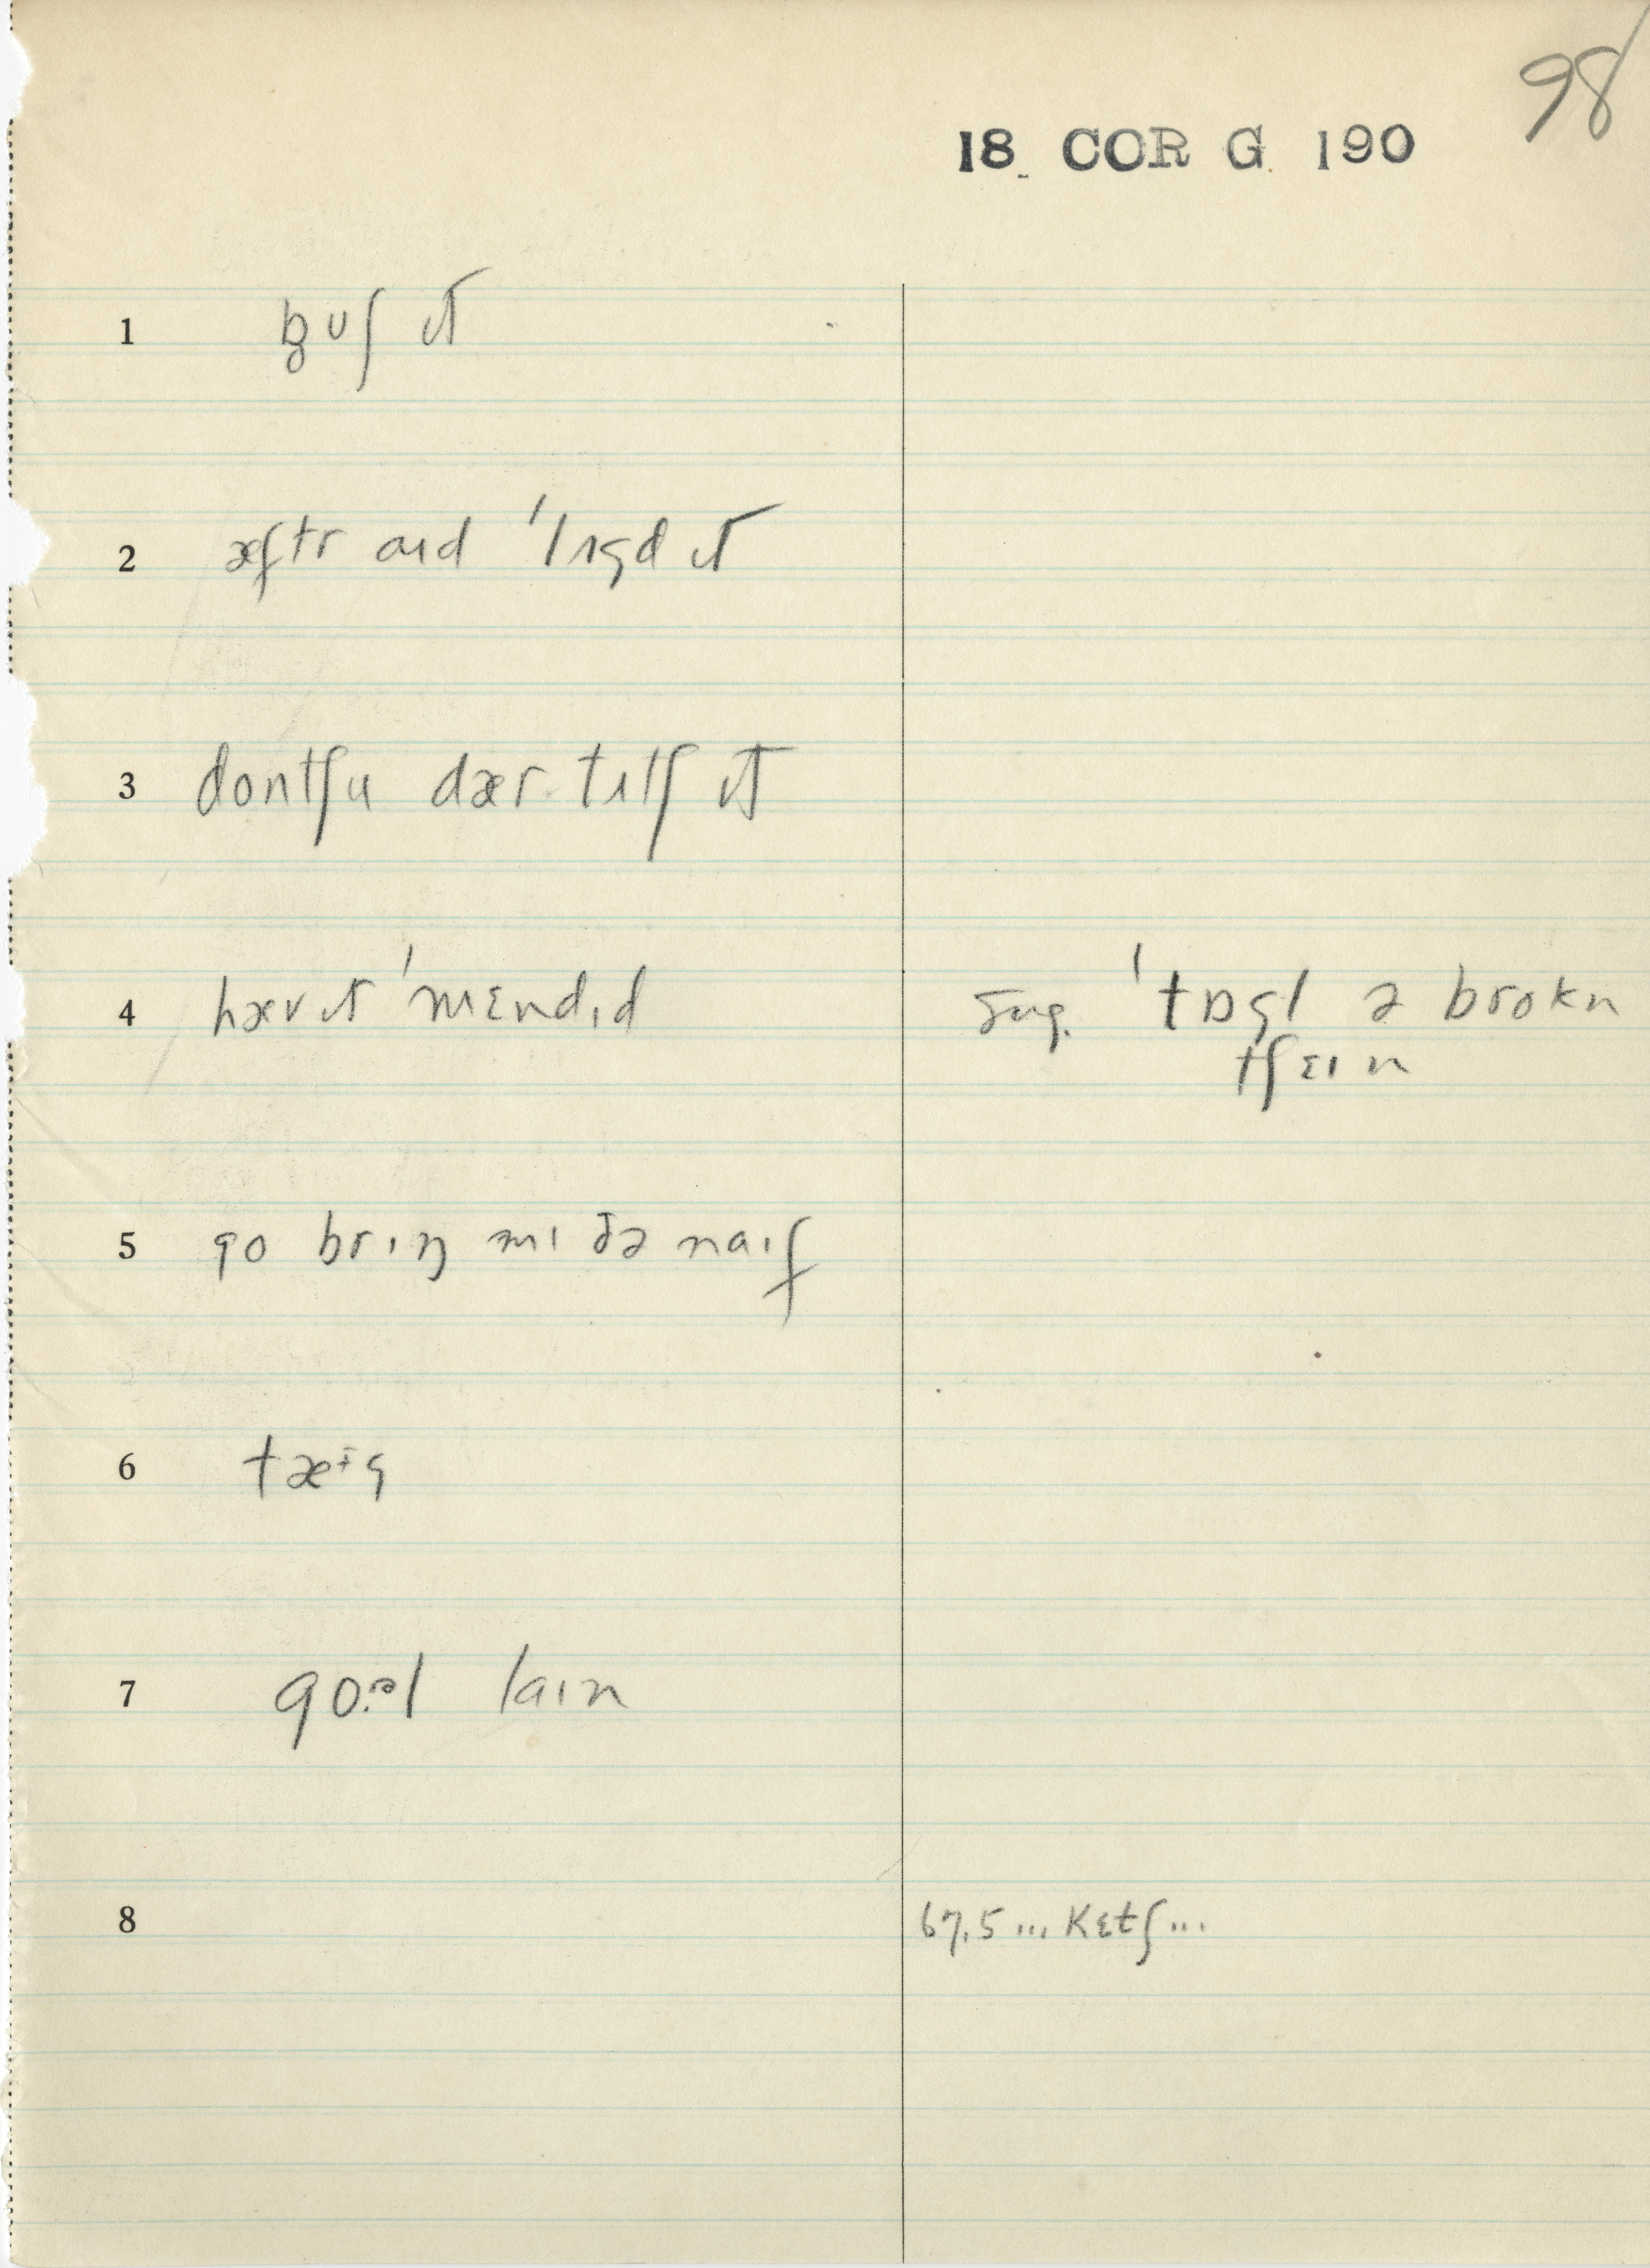 98
18 COR G 190
1 b̥ʊʃ ɪt
2 æftr aɪd ˈlʌgd ɪt
3 dontʃu dær tʌtʃ ɪt
4 hæv ɪt ˈmɛndɪd
sug. ˈtɒgl ə brokn
tʃɛɪn
5 go brɪŋ mɪ ðə naɪf
6 tæɨg
7 goəl laɪn
8 67.5 ... kɛtʃ ...